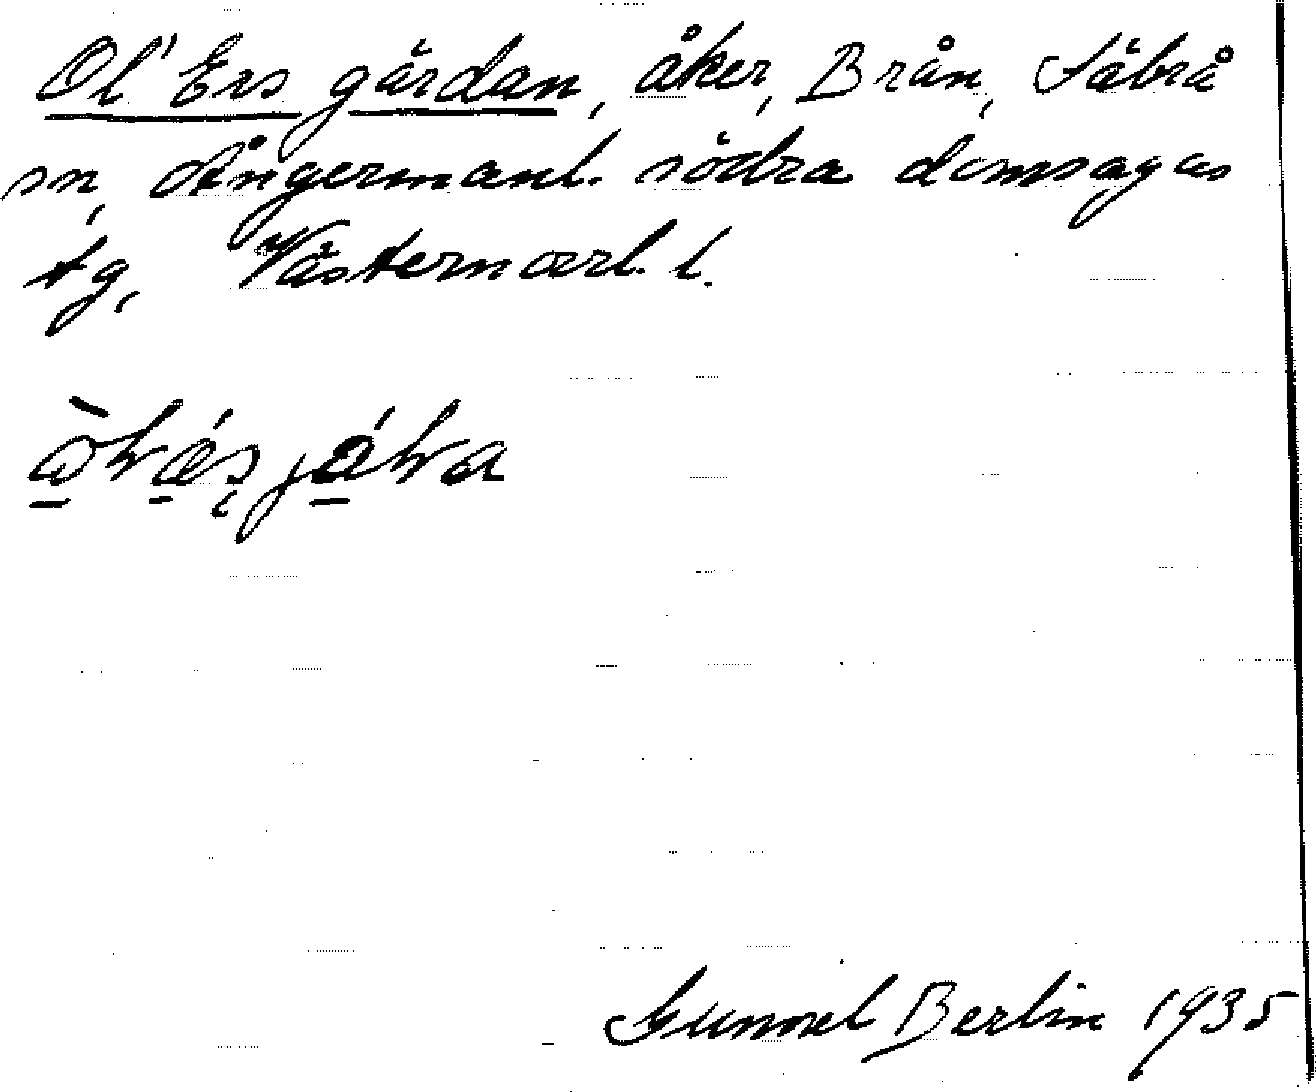 Ol' Ers gärdan, åker, Brån, Säbrå
sn, Ångermanl. södra domsagas
tg, Västernorrl. l.
Gunnel Berlin 1935